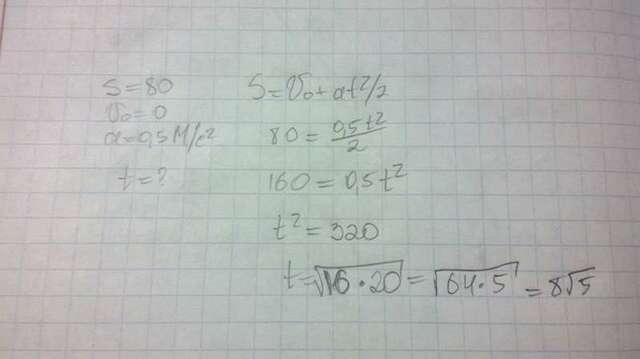 S=80
V₀=0
a=0,5 М/с²
t=?
S=V₀+at²/2
80=0,5t²/2
160=0,5t²
t²=320
t=√16·20=√64·5=8√5